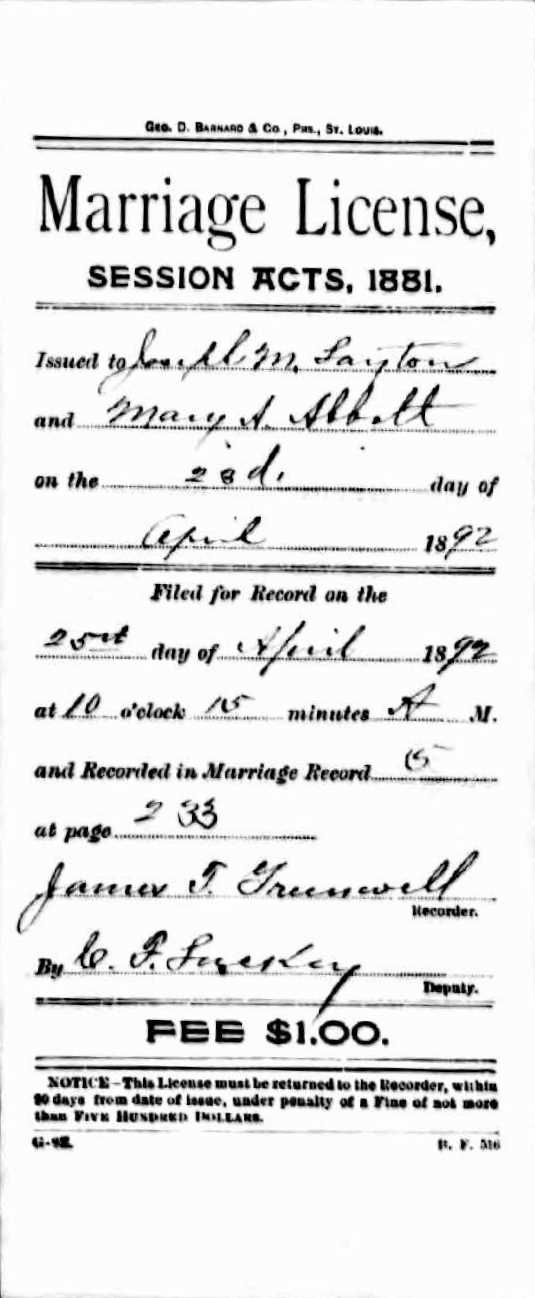 GEO. D. BARNARD & CO., PRS., ST. LOUIS.
Marriage License,
SESSION ACTS, 1881.
Issued to Joseph M. Layton
and Mary A. Abbott
on the 23d. day of
April 1892
Filed for Record on the
25st day of April 1892
at 10 o'clock 15 minutes A M.
and Recorded in Marriage Record 5
at page 233
James T. Greenwell
Recorder.
By C. F. Luckey
Deputy.
FEE $1.00.
NOTICE—This License must be returned to the Recorder, within
90 days from date of issue, under penalty of a Fine of not more
than FIVE HUNDRED DOLLARS.